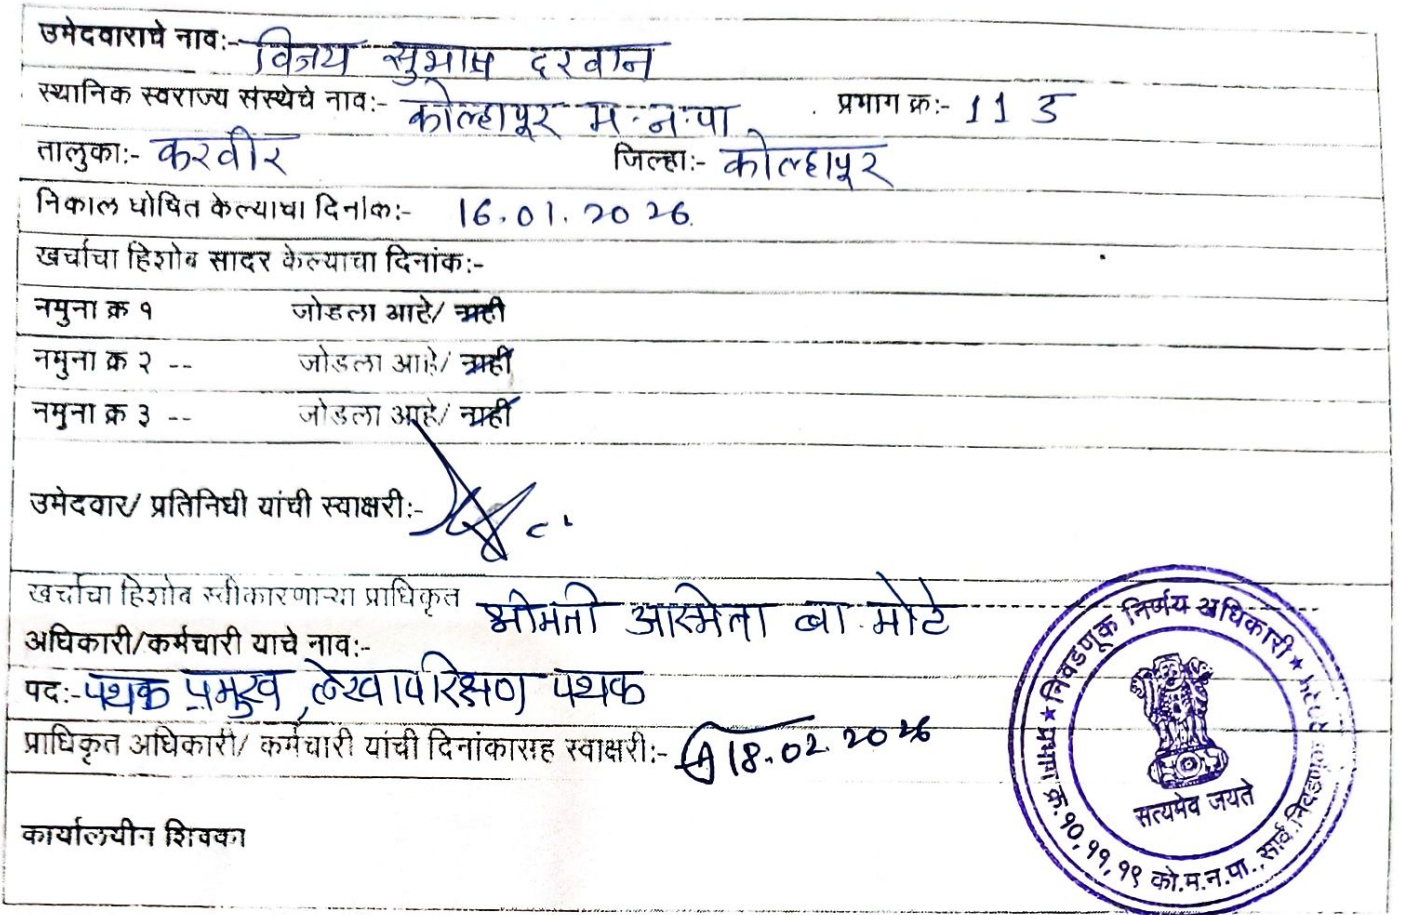 उमेदवाराचे नाव:- विजय सुभाष दरवान
स्थानिक स्वराज्य संस्थेचे नाव:- कोल्हापूर म.न.पा. प्रभाग क्र:- 11 ड
तालुका:- करवीर जिल्हा:- कोल्हापूर
निकाल घोषित केल्याचा दिनांक:- 16.01.2026.
खर्चाचा हिशोब सादर केल्याचा दिनांक:-
नमुना क्र १ जोडला आहे/ नाही
नमुना क्र २ -- जोडला आहे/ नाही
नमुना क्र ३ -- जोडला आहे/ नाही
उमेदवार/ प्रतिनिधी यांची स्वाक्षरी:-
खर्चाचा हिशोब स्वीकारणाऱ्या प्राधिकृत श्रीमती अस्मिता बा. मोटे
अधिकारी/कर्मचारी याचे नाव:-
पद:- पथक प्रमुख, लेखापरिक्षण पथक
प्राधिकृत अधिकारी/ कर्मचारी यांची दिनांकासह स्वाक्षरी:- 18.02.2026
कार्यालयीन शिक्का
निवडणूक निर्णय अधिकारी
प्रभाग क्र.१०, ११, १९ को.म.न.पा., सार्व. निवडणूक
सत्यमेव जयते